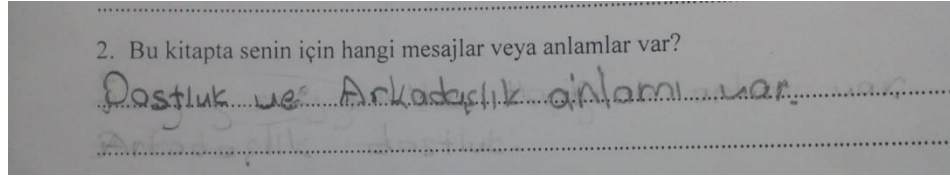 2. Bu kitapta senin için hangi mesajlar veya anlamlar var?
Dostluk ve Arkadaşlık anlamı var.